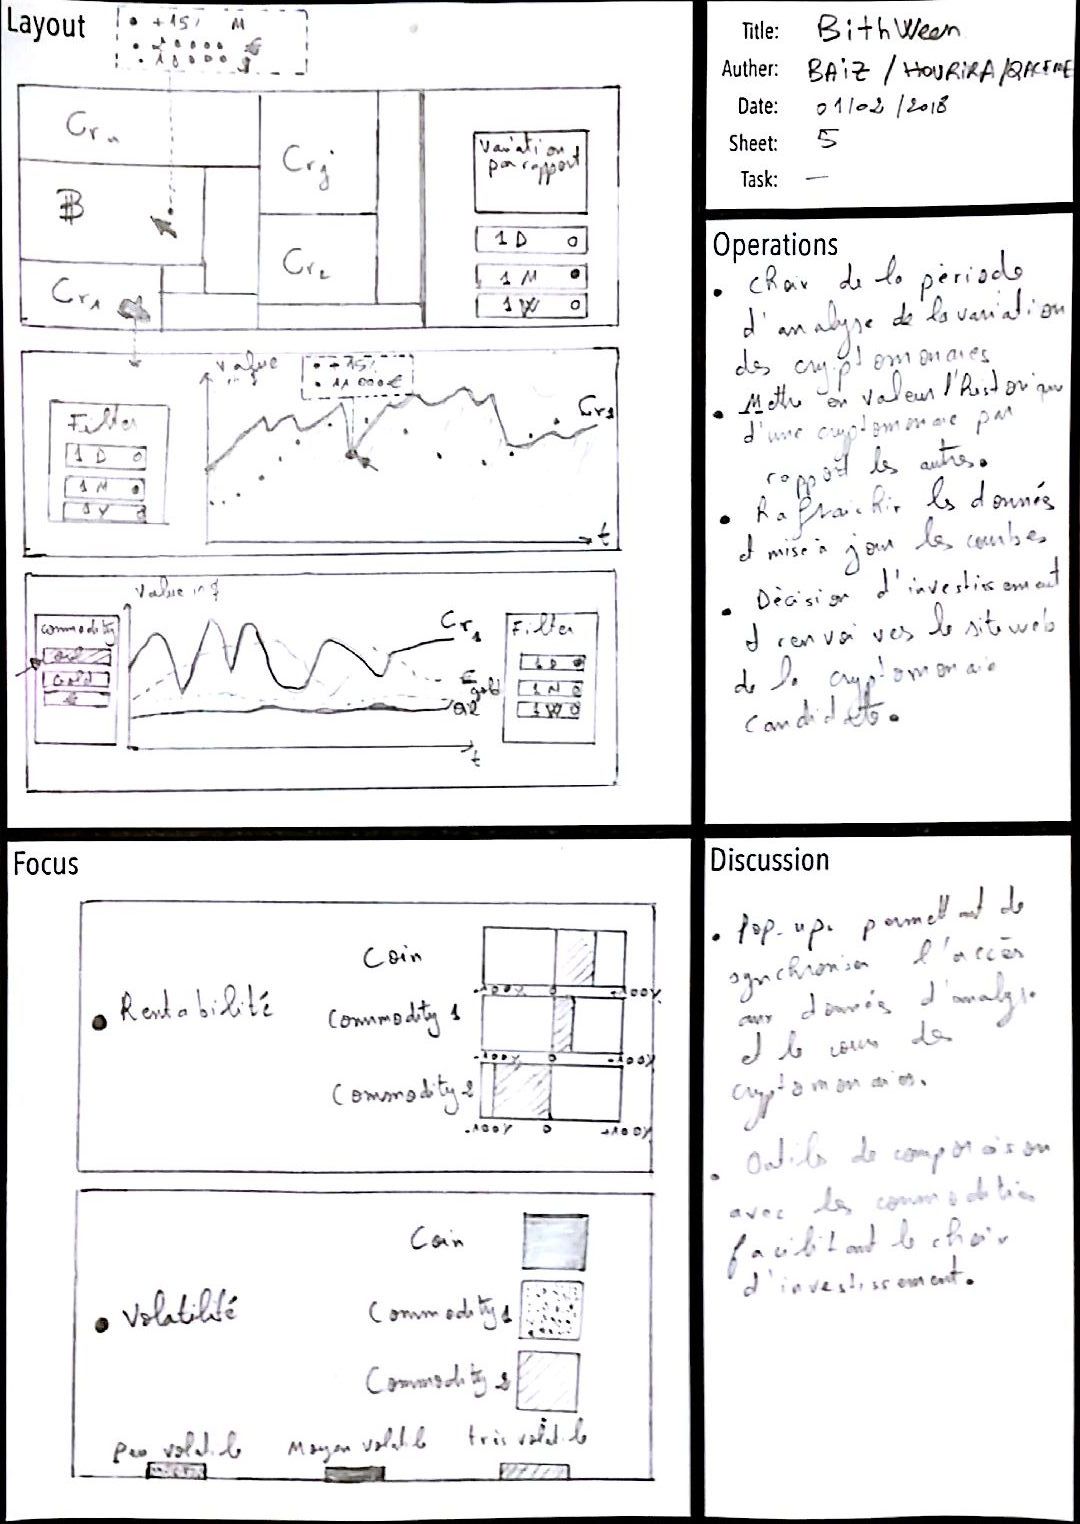 Layout
+15% M
Cr
Crj
B
Cr2
Cr1
Variation
par rapport
1 D
1 M
1 W
value
+15%
11 000 €
Cr1
Filter
1 D
1 M
1 Y
t
Value in $
commodity
oil
Gold
Cr1
gold
oil
t
Filter
1 D
1 M
1 W
Title: BithWeen
Auther: BAIZ / HOURIRA/QACEME
Date: 01/02/2018
Sheet: 5
Task: —
Operations
• Choix de la période
d'analyse de la variation
des cryptomonaies
• Mettre en valeur l'historique
d'une cryptomonaie par
rapport les autres.
• Rafraichir les données
et mise à jour les courbes
• Décision d'investissement
et renvoi vers le site web
de la cryptomonaie
candidate.
Focus
• Rentabilité
Coin
-100% 0 +100%
Commodity 1
-100% 0 +100%
Commodity 2
-100% 0 +100%
• Volatilité
Coin
Commodity 1
Commodity 2
peu volatile Moyen volatile très volatile
Discussion
• Pop-up permettant de
synchroniser l'accès
aux données d'analyse
et le cours des
cryptomonaies.
• Outils de comparaison
avec les commodities
facilitant le choix
d'investissement.